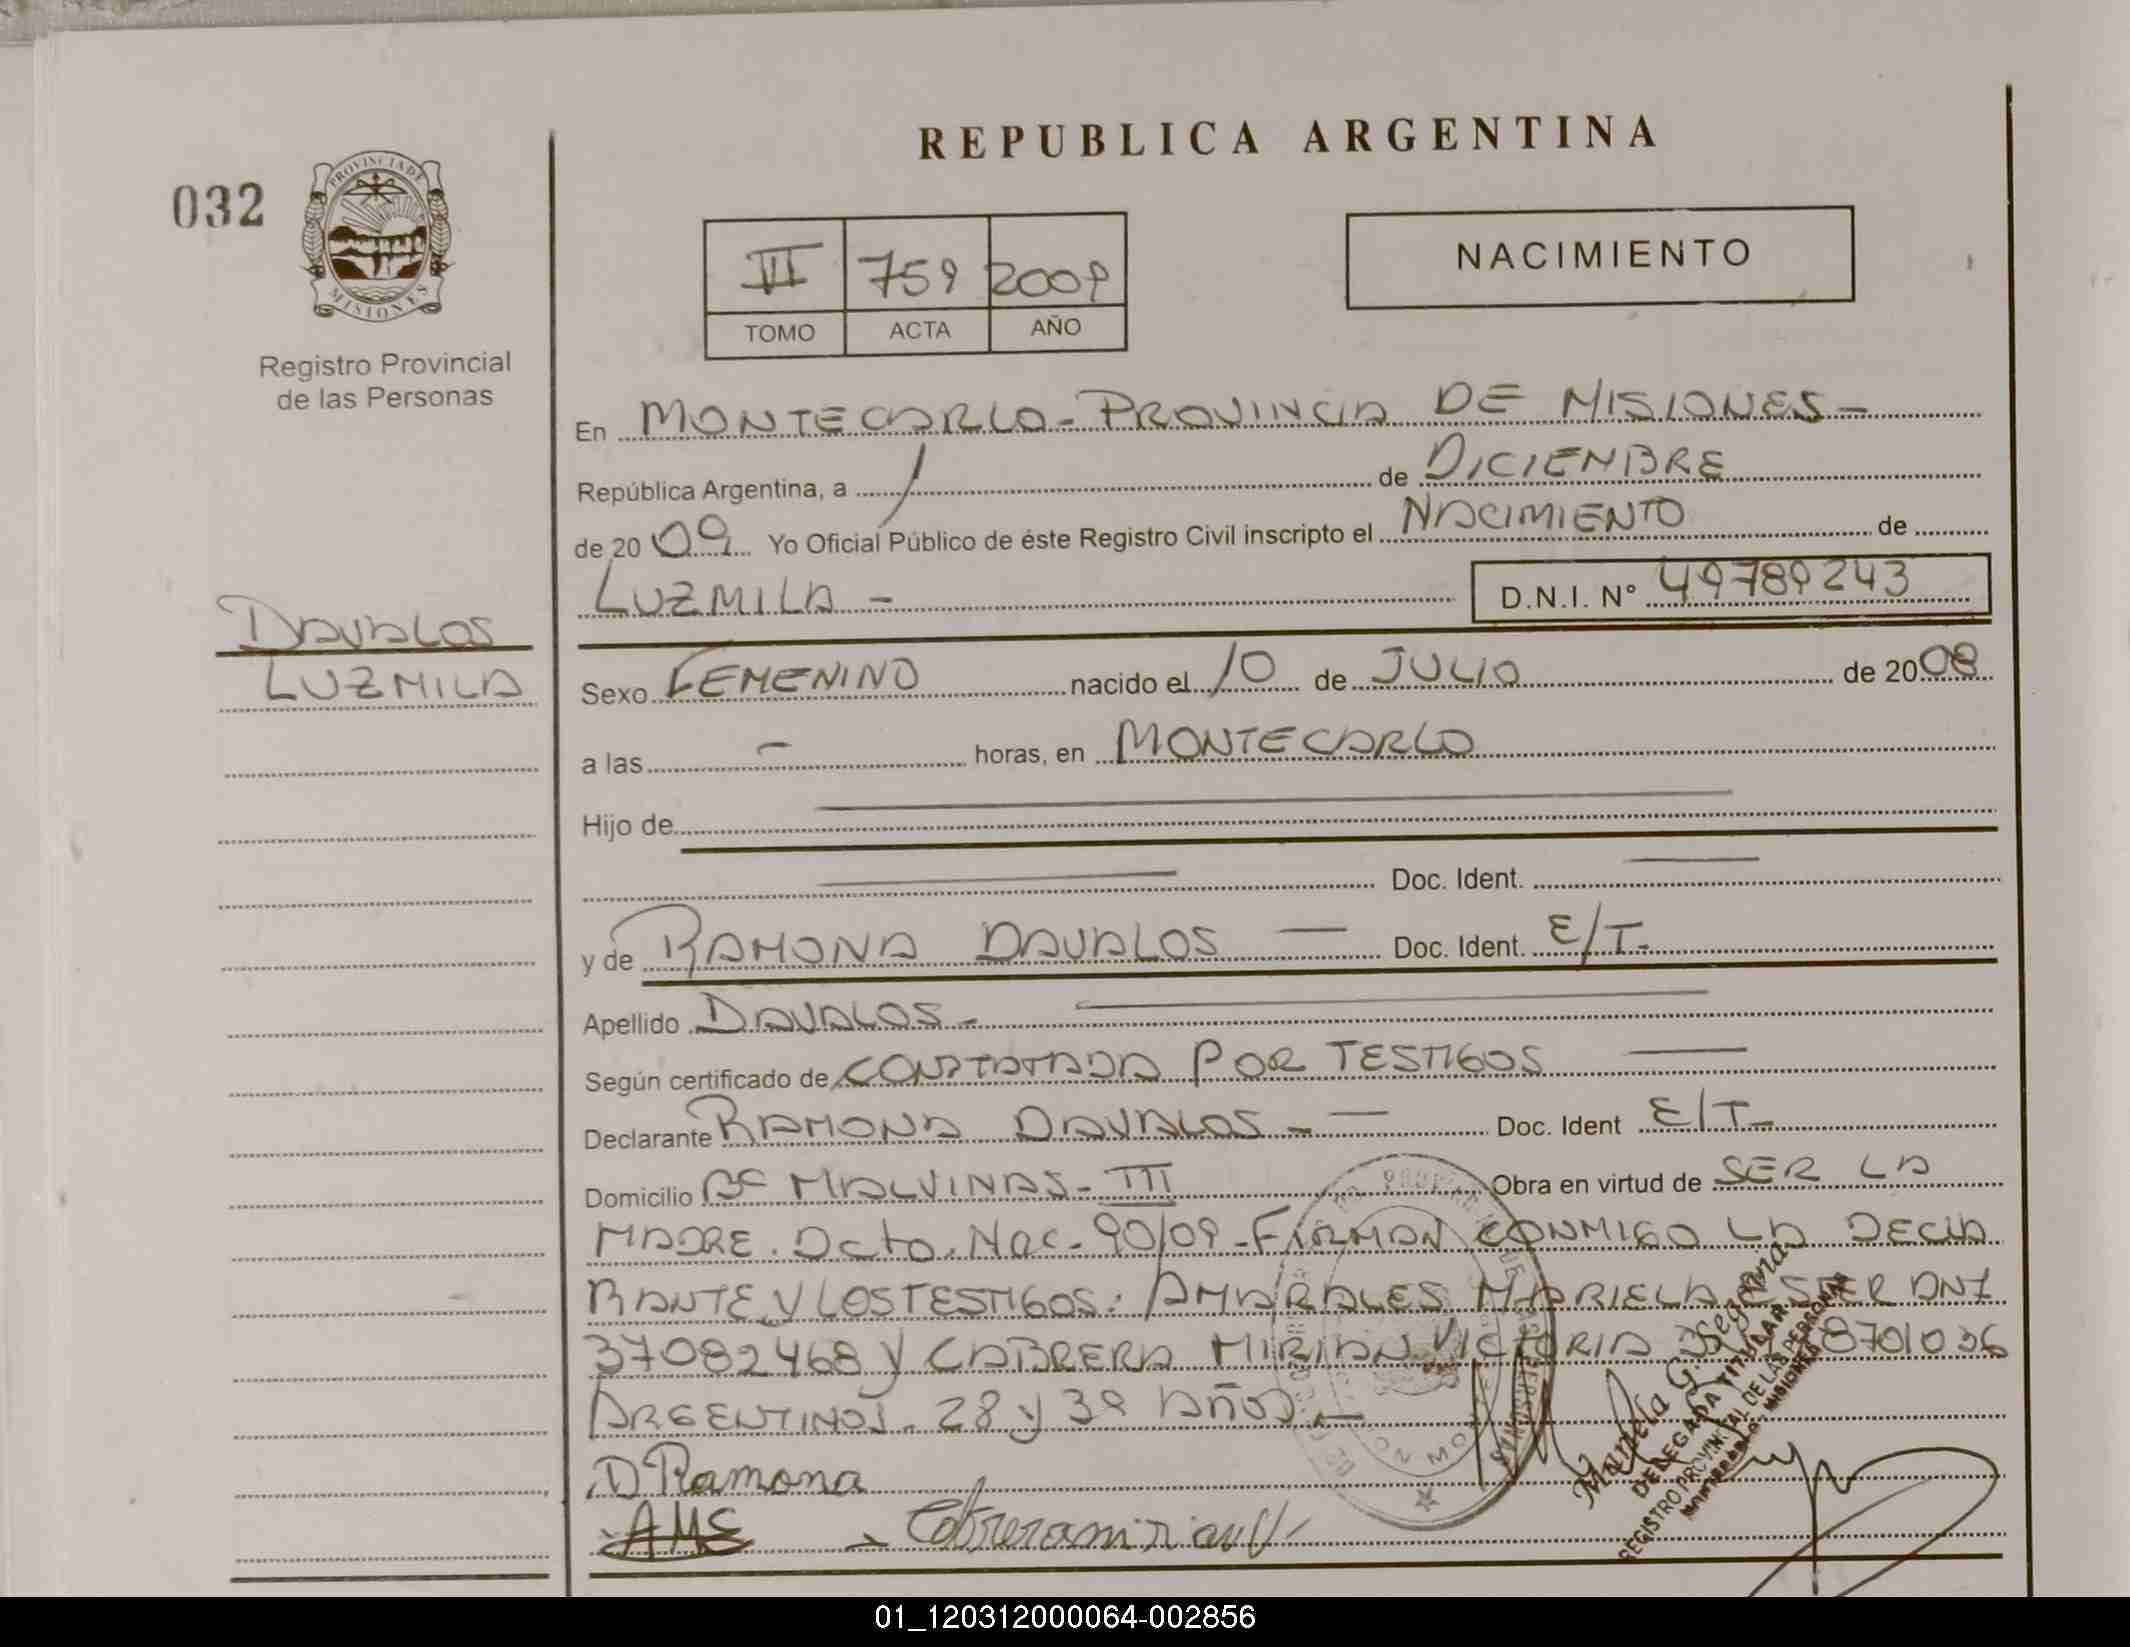 REPUBLICA ARGENTINA
032
PROVINCIA DE
MISIONES
Registro Provincial
de las Personas
VI 759 2009
TOMO ACTA AÑO
NACIMIENTO
En MONTECARLO - PROVINCIA DE MISIONES -
República Argentina, a 1 de DICIEMBRE
de 2009 Yo Oficial Público de éste Registro Civil inscripto el NACIMIENTO de
LUZMILA - D.N.I. N° 49789243
DAVALOS
LUZMILA
Sexo FEMENINO nacido el 10 de JULIO de 2008
a las - horas, en MONTECARLO
Hijo de
Doc. Ident.
y de RAMONA DAVALOS — Doc. Ident. E/T.
Apellido DAVALOS -
Según certificado de CONSTATADA POR TESTIGOS —
Declarante RAMONA DAVALOS - — Doc. Ident E/T -
Domicilio B° MALVINAS - III Obra en virtud de SER LA
MADRE. Dcto. Nac - 90/09 - FIRMAN CONMIGO LA DECLA
RANTE Y LOS TESTIGOS: AMARALES MARIELA ESTER DNI
37082468 Y CABRERA MIRIAN VICTORIA 8701036
ARGENTINOS - 28 y 39 AÑOS -
D Ramona
AME - Cabrera mirian V
Mariela G. Segovia
DELEGADA TITULAR
REGISTRO PROVINCIAL DE LAS PERSONAS
MONTECARLO - MISIONES
01_120312000064-002856